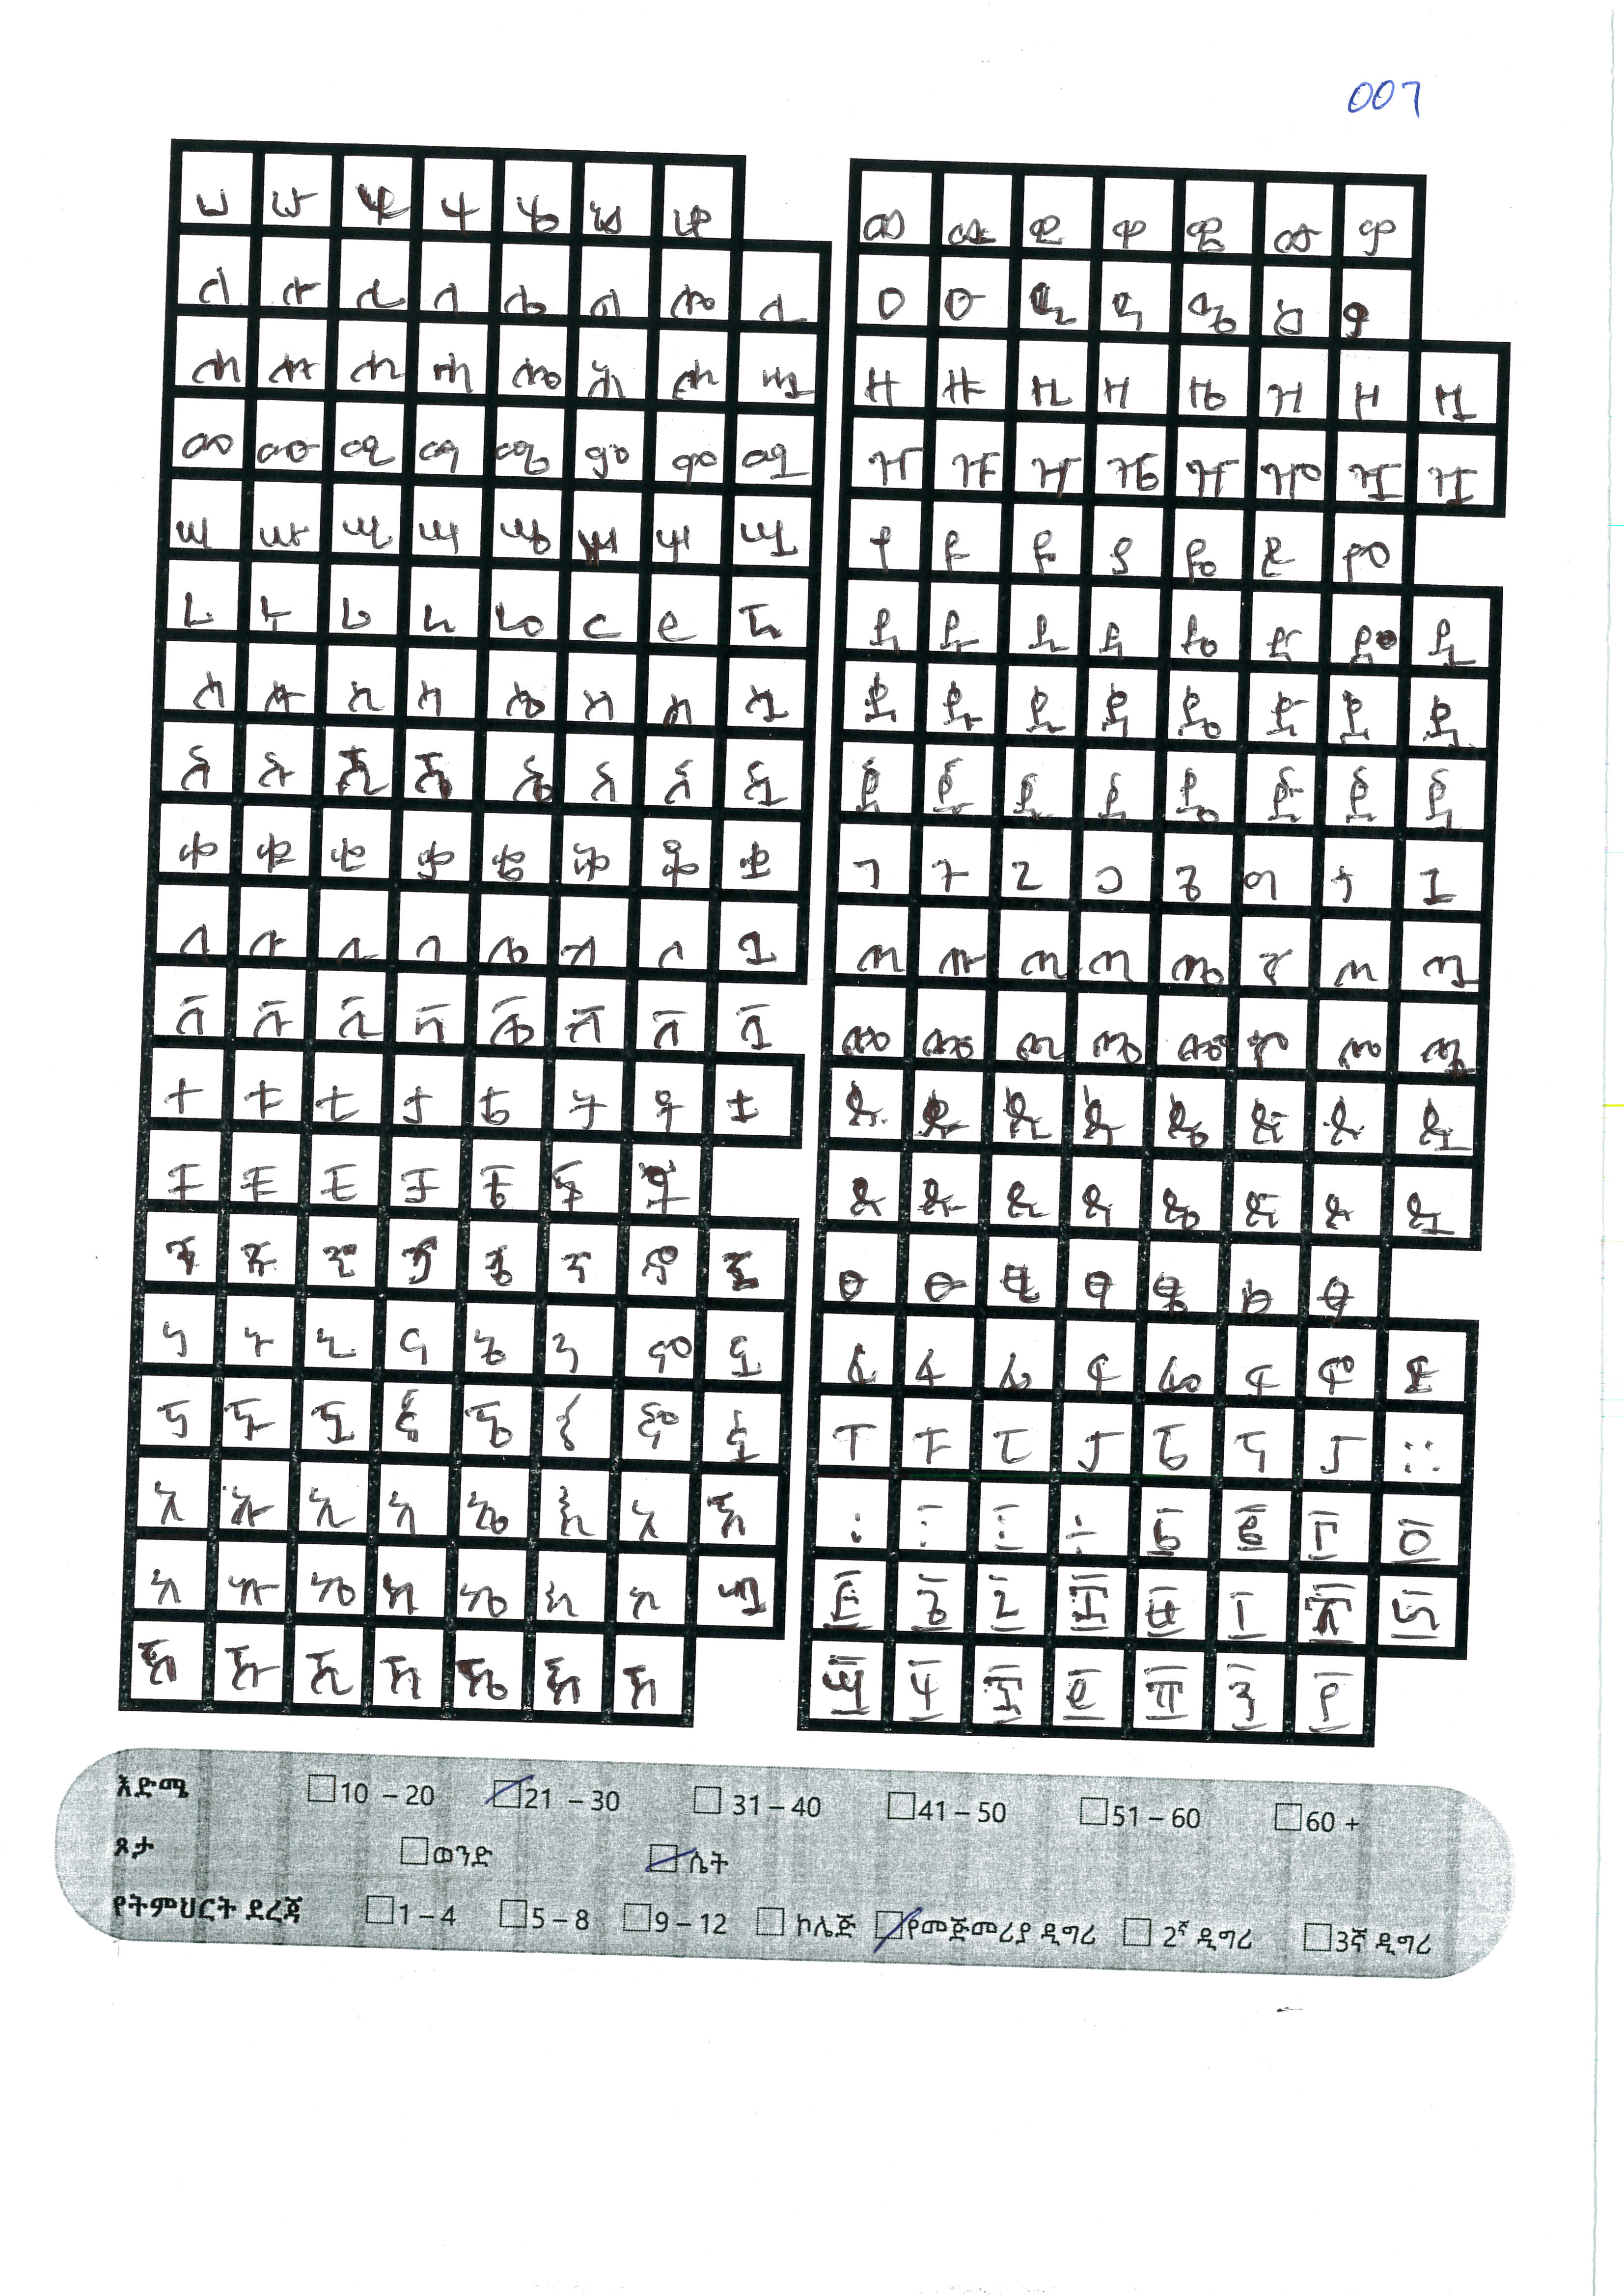 007
ሀ ሁ ሂ ሃ ሄ ህ ሆ
ለ ሉ ሊ ላ ሌ ል ሎ ሏ
ሐ ሑ ሒ ሓ ሔ ሕ ሖ ሗ
መ ሙ ሚ ማ ሜ ም ሞ ሟ
ሠ ሡ ሢ ሣ ሤ ሥ ሦ ሧ
ረ ሩ ሪ ራ ሬ ር ሮ ሯ
ሰ ሱ ሲ ሳ ሴ ስ ሶ ሷ
ሸ ሹ ሺ ሻ ሼ ሽ ሾ ሿ
ቀ ቁ ቂ ቃ ቄ ቅ ቆ ቋ
በ ቡ ቢ ባ ቤ ብ ቦ ቧ
ቨ ቩ ቪ ቫ ቬ ቭ ቮ ቯ
ተ ቱ ቲ ታ ቴ ት ቶ ቷ
ቸ ቹ ቺ ቻ ቼ ች ቾ
ነ ኑ ኒ ና ኔ ን ኖ ኗ
ኘ ኙ ኚ ኛ ኜ ኝ ኞ ኟ
አ ኡ ኢ ኣ ኤ እ ኦ ኧ
ከ ኩ ኪ ካ ኬ ክ ኮ ኳ
ኸ ኹ ኺ ኻ ኼ ኽ ኾ
ወ ዉ ዊ ዋ ዌ ው ዎ
ዐ ዑ ዒ ዓ ዔ ዕ ዖ
ዘ ዙ ዚ ዛ ዜ ዝ ዞ ዟ
ዠ ዡ ዢ ዣ ዤ ዥ ዦ ዧ
የ ዩ ዪ ያ ዬ ይ ዮ
ደ ዱ ዲ ዳ ዴ ድ ዶ ዷ
ዸ ዹ ዺ ዻ ዼ ዽ ዾ ዿ
ጀ ጁ ጂ ጃ ጄ ጅ ጆ ጇ
ገ ጉ ጊ ጋ ጌ ግ ጎ ጓ
ጠ ጡ ጢ ጣ ጤ ጥ ጦ ጧ
ጨ ጩ ጪ ጫ ጬ ጭ ጮ ጯ
ጰ ጱ ጲ ጳ ጴ ጵ ጶ ጷ
ጸ ጹ ጺ ጻ ጼ ጽ ጾ ጿ
ፀ ፁ ፂ ፃ ፄ ፅ ፆ
ፈ ፉ ፊ ፋ ፌ ፍ ፎ ፏ
ፐ ፑ ፒ ፓ ፔ ፕ ፖ ።
፡ ፤ ፥ ÷ ፩ ፪ ፫ ፬
፭ ፮ ፯ ፰ ፱ ፲ ፳ ፴
፵ ፶ ፷ ፸ ፹ ፺ ፻
እድሜ 10 – 20 21 – 30 31 – 40 41 – 50 51 – 60 60 +
ጾታ ወንድ ሴት
የትምህርት ደረጃ 1 – 4 5 – 8 9 – 12 ኮሌጅ የመጀመሪያ ዲግሪ 2ኛ ዲግሪ 3ኛ ዲግሪ